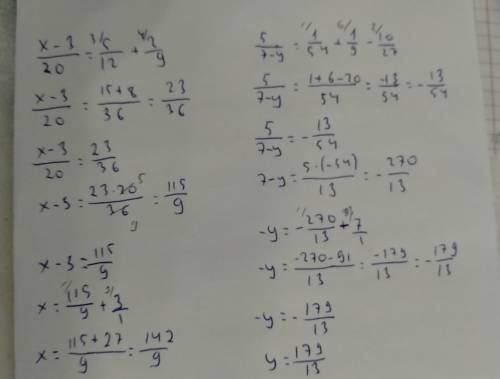 x - 3 / 20 = 3/ 5 / 12 + 4/ 2 / 9
x - 3 / 20 = 15 + 8 / 36 = 23 / 36
x - 3 / 20 = 23 / 36
x - 3 = 23 · 20 5 / 36 9 = 115 / 9
x - 3 = 115 / 9
x = 1/ 115 / 9 + 9/ 3 / 1
x = 115 + 27 / 9 = 142 / 9
5 / 7 - y = 1/ 1 / 54 + 6/ 1 / 9 - 2/ 10 / 27
5 / 7 - y = 1 + 6 - 20 / 54 = -13 / 54 = - 13 / 54
5 / 7 - y = - 13 / 54
7 - y = 5 · (-54) / 13 = - 270 / 13
-y = - 1/ 270 / 13 + 13/ 7 / 1
-y = -270 - 91 / 13 = -179 / 13 = - 179 / 13
-y = - 179 / 13
y = 179 / 13